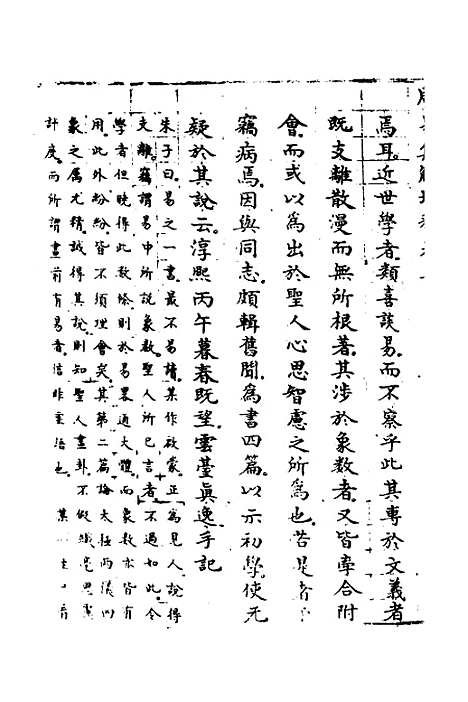 焉耳。近世學者。類喜談易。而不察乎此。其專於文義者
既支離散漫而無所根著。其涉於象數者。又皆牽合附
會。而或以爲出於聖人心思智慮之所爲也。若是者
竊病焉。因與同志。頗輯舊聞。爲書四篇。以示初學。使无
疑於其說云。淳熙丙午暮春既望。雲臺眞逸手記
朱子曰。易之一書。最不易讀。某作啟蒙。正爲見人說得
支離。竊謂易中所說象數。聖人所已言者。不過如此。今
學者但曉得此數條。則於易畧通大體。而象數亦皆有
用。此外紛紛。皆不須理會矣。其第二篇論太極兩儀四
象之屬尤精。誠得其說。則知聖人畫卦。不假纎毫思慮
計度。而所謂畫前有易者。信非妄語也